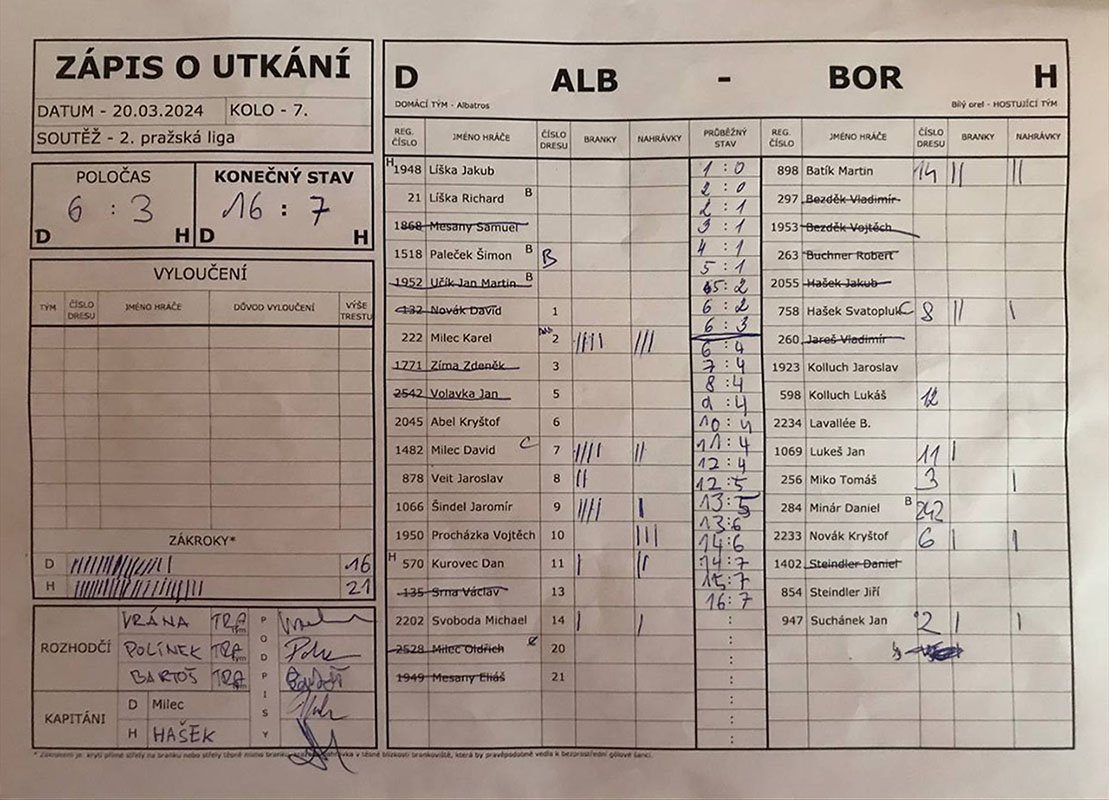 ZÁPIS O UTKÁNÍ
DATUM - 20.03.2024 KOLO - 7.
SOUTĚŽ - 2. pražská liga
POLOČAS KONEČNÝ STAV
6 : 3 16 : 7
D H D H
VYLOUČENÍ
TÝM ČÍSLO DRESU JMÉNO HRÁČE DŮVOD VYLOUČENÍ VÝŠE TRESTU
ZÁKROKY*
D 16
H 21
ROZHODČÍ
VRÁNA TRA
POLÍNEK TRA
BARTOŠ TRA
PODPISY
KAPITÁNI
D Milec
H HAŠEK
D ALB - BOR H
DOMÁCÍ TÝM - Albatros Bílý orel - HOSTUJÍCÍ TÝM
REG. ČÍSLO JMÉNO HRÁČE ČÍSLO DRESU BRANKY NAHRÁVKY PRŮBĚŽNÝ STAV REG. ČÍSLO JMÉNO HRÁČE ČÍSLO DRESU BRANKY NAHRÁVKY
H 1948 Líška Jakub
21 Líška Richard B
1868 Mesany Samuel
1518 Paleček Šimon B B
1952 Učík Jan Martin B
132 Novák David 1
222 Milec Karel 2 |||| |||
1771 Zíma Zdeněk 3
2542 Volavka Jan 5
2045 Abel Kryštof 6
1482 Milec David C 7 |||| ||
878 Veit Jaroslav 8 ||
1066 Šindel Jaromír 9 |||| |
1950 Procházka Vojtěch 10 |||
H 570 Kurovec Dan 11 | ||
135 Srna Václav 13
2202 Svoboda Michael 14 | |
2528 Milec Oldřich 20
1949 Mesany Eliáš 21
1 : 0
2 : 0
2 : 1
3 : 1
4 : 1
5 : 1
5 : 2
6 : 2
6 : 3
6 : 4
7 : 4
8 : 4
9 : 4
10 : 4
11 : 4
12 : 4
12 : 5
13 : 5
13 : 6
14 : 6
14 : 7
15 : 7
16 : 7
898 Batík Martin 14 || ||
297 Bezděk Vladimír
1953 Bezděk Vojtěch
263 Buchner Robert
2055 Hašek Jakub
758 Hašek Svatopluk C 8 || |
260 Jareš Vladimír
1923 Kolluch Jaroslav
598 Kolluch Lukáš 12
2234 Lavallée B.
1069 Lukeš Jan 11 |
256 Miko Tomáš 3 |
284 Minár Daniel B 242
2233 Novák Kryštof 6 | |
1402 Steindler Daniel
854 Steindler Jiří
947 Suchánek Jan 2 | |